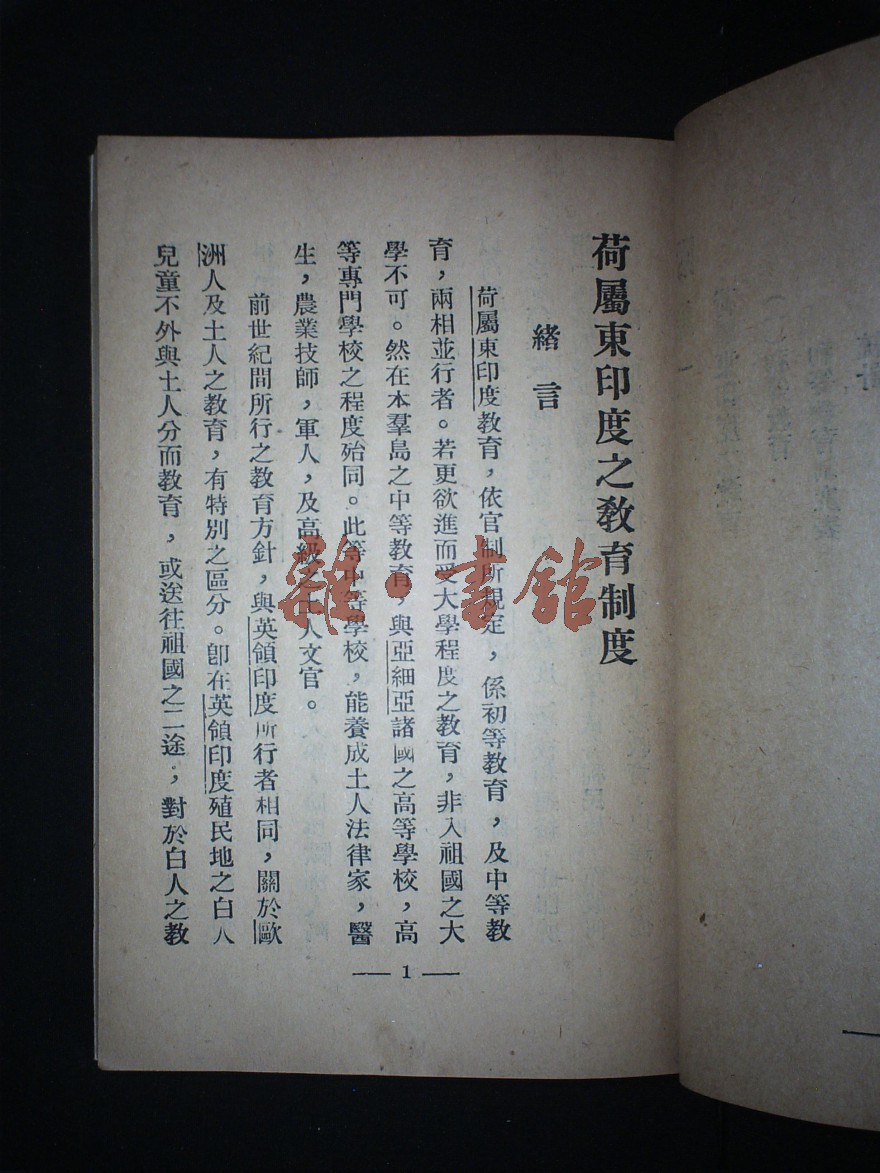 荷屬東印度之教育制度
緒言
荷屬東印度教育，依官制所規定，係初等教育，及中等教
育，兩相並行者。若更欲進而受大學程度之教育，非入祖國之大
學不可。然在本羣島之中等教育，與亞細亞諸國之高等學校，高
等專門學校之程度殆同。此等中等學校，能養成土人法律家，醫
生，農業技師，軍人，及高級之土人文官。
前世紀間所行之教育方針，與英領印度所行者相同，關於歐
洲人及土人之教育，有特別之區分。卽在英領印度殖民地之白人
兒童不外與土人分而教育，或送往祖國之二途，對於白人之教
— 1 —
雜·書館